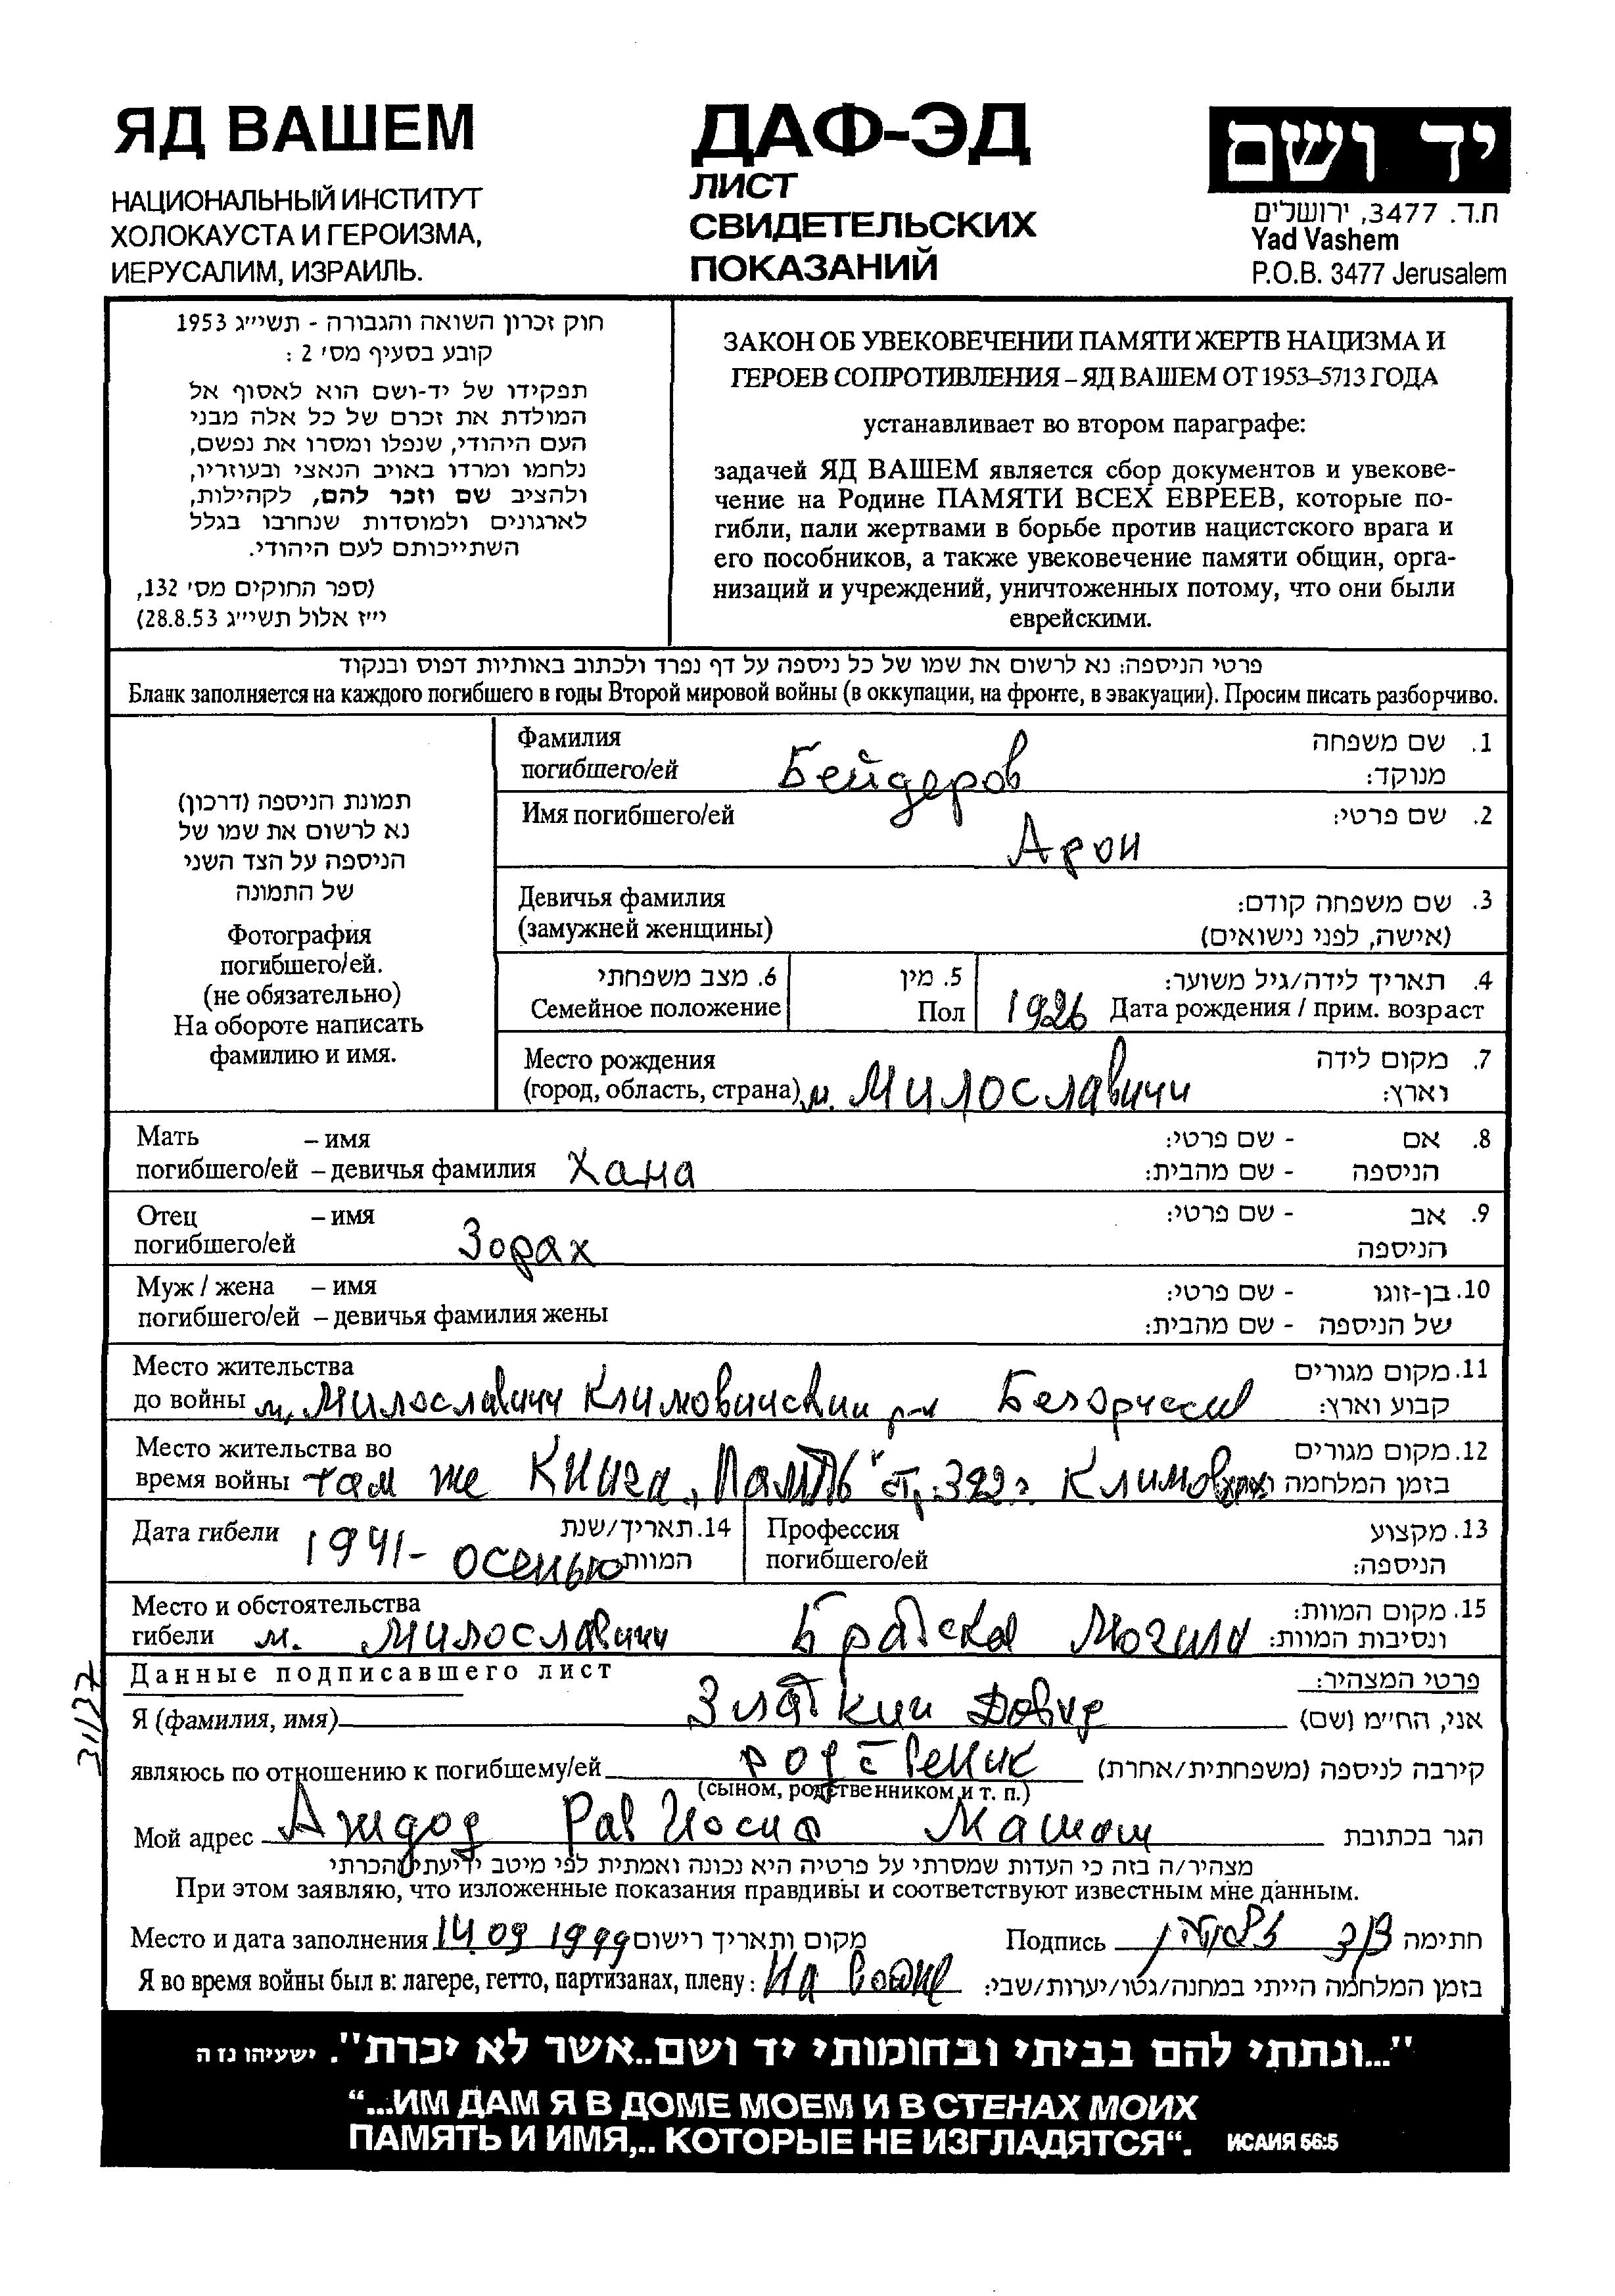 ЯД ВАШЕМ
НАЦИОНАЛЬНЫЙ ИНСТИТУТ
ХОЛОКАУСТА И ГЕРОИЗМА,
ИЕРУСАЛИМ, ИЗРАИЛЬ.
ДАФ-ЭД
ЛИСТ
СВИДЕТЕЛЬСКИХ
ПОКАЗАНИЙ
יד ושם
ת.ד. 3477, ירושלים
Yad Vashem
P.O.B. 3477 Jerusalem
חוק זכרון השואה והגבורה - תשי״ג 1953
קובע בסעיף מס׳ 2 :
תפקידו של יד-ושם הוא לאסוף אל
המולדת את זכרם של כל אלה מבני
העם היהודי, שנפלו ומסרו את נפשם,
נלחמו ומרדו באויב הנאצי ובעוזריו,
ולהציב שם וזכר להם, לקהילות,
לארגונים ולמוסדות שנחרבו בגלל
השתייכותם לעם היהודי.
(ספר החוקים מס׳ 132,
י״ז אלול תשי״ג 28.8.53)
ЗАКОН ОБ УВЕКОВЕЧЕНИИ ПАМЯТИ ЖЕРТВ НАЦИЗМА И
ГЕРОЕВ СОПРОТИВЛЕНИЯ – ЯД ВАШЕМ ОТ 1953–5713 ГОДА
устанавливает во втором параграфе:
задачей ЯД ВАШЕМ является сбор документов и увекове-
чение на Родине ПАМЯТИ ВСЕХ ЕВРЕЕВ, которые по-
гибли, пали жертвами в борьбе против нацистского врага и
его пособников, а также увековечение памяти общин, орга-
низаций и учреждений, уничтоженных потому, что они были
еврейскими.
פרטי הניספה: נא לרשום את שמו של כל ניספה על דף נפרד ולכתוב באותיות דפוס ובנקוד
Бланк заполняется на каждого погибшего в годы Второй мировой войны (в оккупации, на фронте, в эвакуации). Просим писать разборчиво.
תמונת הניספה (דרכון)
נא לרשום את שמו של
הניספה על הצד השני
של התמונה
Фотография
погибшего/ей.
(не обязательно)
На обороте написать
фамилию и имя.
Фамилия 1. שם משפחה
погибшего/ей Бейдеров מנוקד:
Имя погибшего/ей 2. שם פרטי:
Арон
Девичья фамилия 3. שם משפחה קודם:
(замужней женщины) (אישה, לפני נישואים)
6. מצב משפחתי 5. מין 4. תאריך לידה/גיל משוער:
Семейное положение Пол 1926 Дата рождения / прим. возраст
Место рождения 7. מקום לידה
(город, область, страна) м. Милославичи וארץ:
Мать – имя 8. אם - שם פרטי:
погибшего/ей – девичья фамилия Хана הניספה - שם מהבית:
Отец – имя 9. אב - שם פרטי:
погибшего/ей Зорах הניספה
Муж / жена – имя 10. בן-זוגו - שם פרטי:
погибшего/ей – девичья фамилия жены של הניספה - שם מהבית:
Место жительства 11. מקום מגורים
до войны м. Милославичи Климовичский р-н קבוע וארץ:
Место жительства во 12. מקום מגורים
время войны там же Книга „Память" стр. 322 г. בזמן המלחמה
Дата гибели 1941 - осенью 14. תאריך/שנת המוות
Профессия 13. מקצוע
погибшего/ей הניספה:
Место и обстоятельства 15. מקום המוות:
гибели м. Милославичи Братская Могила ונסיבות המוות:
31/37
Данные подписавшего лист פרטי המצהיר:
Я (фамилия, имя) Златкин Давид אני, הח״מ (שם)
являюсь по отношению к погибшему/ей родственик קירבה לניספה (משפחתית/אחרת)
(сыном, родственником и т. п.)
Мой адрес Ашдод Рав Иосиф Машаш הגר בכתובת
מצהיר/ה בזה כי העדות שמסרתי על פרטיה היא נכונה ואמתית לפי מיטב ידיעתי והכרתי
При этом заявляю, что изложенные показания правдивы и соответствуют известным мне данным.
Место и дата заполнения 14.09 1999 מקום ותאריך רישום Подпись חתימה
Я во время войны был в: лагере, гетто, партизанах, плену: На войне בזמן המלחמה הייתי במחנה/גטו/יערות/שבי:
"...ונתתי להם בביתי ובחומותי יד ושם..אשר לא יכרת". ישעיהו נז ה
“...ИМ ДАМ Я В ДОМЕ МОЕМ И В СТЕНАХ МОИХ
ПАМЯТЬ И ИМЯ,.. КОТОРЫЕ НЕ ИЗГЛАДЯТСЯ“. ИСАИЯ 56:5